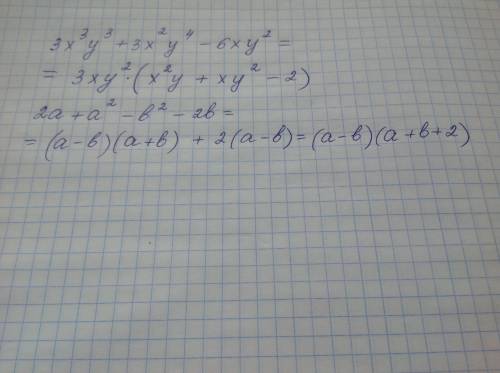 3x³y³ + 3x²y⁴ - 6xy² =
= 3xy² · (x²y + xy² - 2)
2a + a² - b² - 2b =
= (a-b)(a+b) + 2(a-b) = (a-b)(a+b+2)